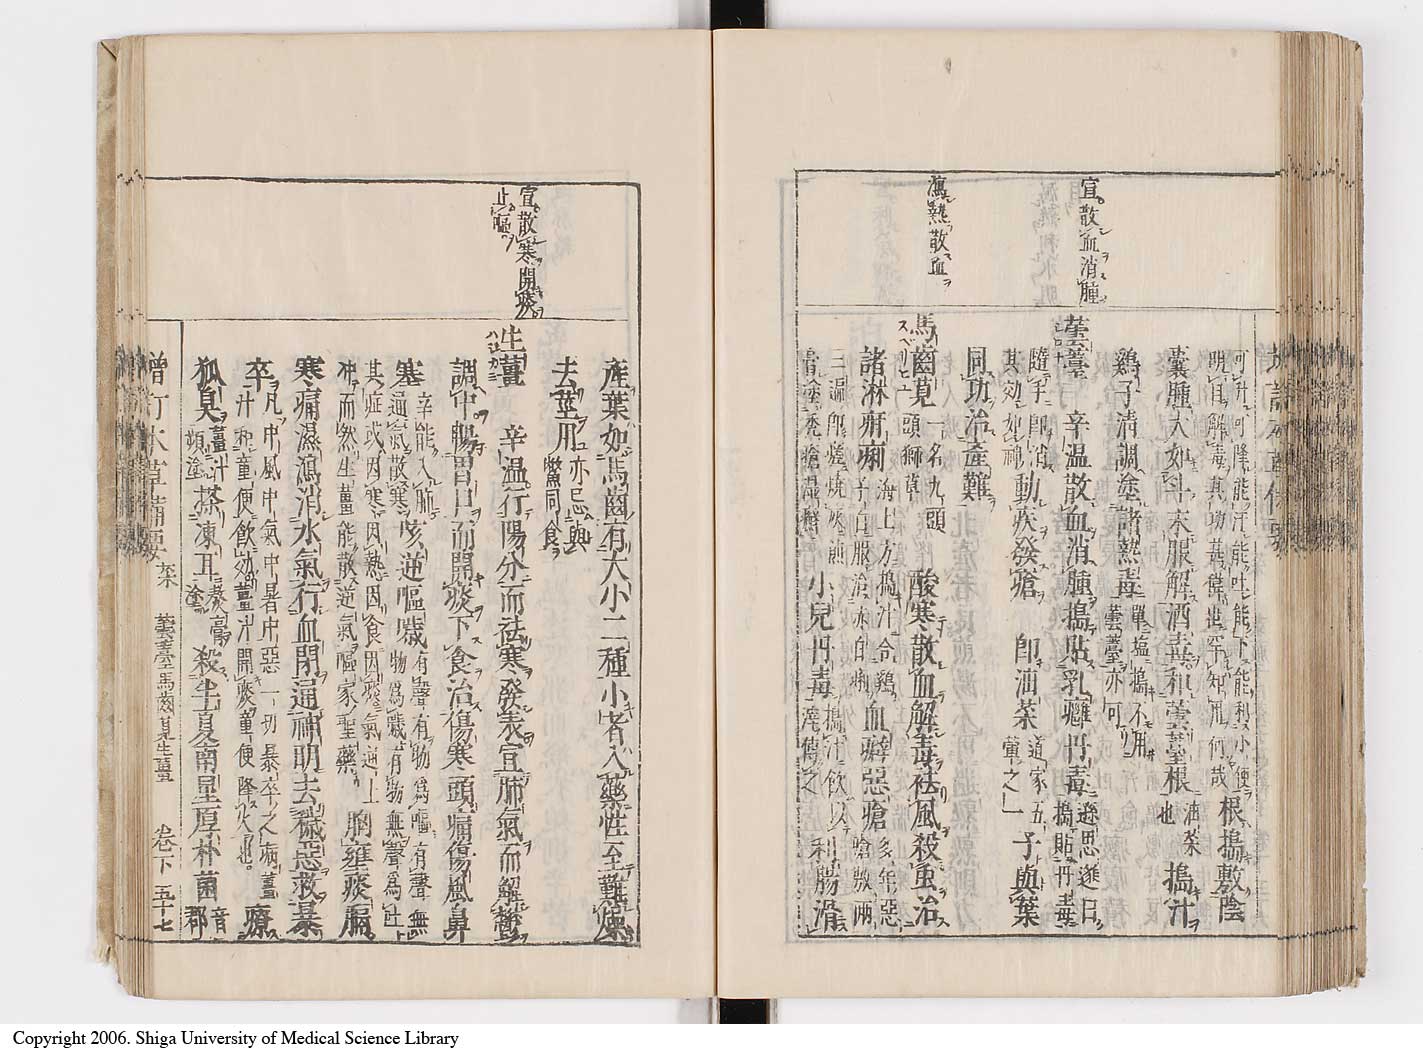 宣散血消腫
瀉熱散血
可升可降能汗能吐能下能利小便
明目解毒其功甚偉世罕知用何哉
根搗敷陰
囊腫大如斗末服解酒毒和蕓薹根
油菜
也
搗汁
雞子清調塗諸熱毒
單塩搗不用
蕓薹亦可
蕓薹
辛温散血消腫搗貼乳癰丹毒
遜思邈曰
搗貼丹毒
隨手即消
其効如神
動疾發瘡
即油菜
道家五
葷之一
子與葉
同功治產難
馬齒莧
一名九頭
獅草
酸寒散血解毒祛風殺蟲治
諸淋疳痢
海上方搗汁合雞
子白服治赤白痢
血癖惡瘡
多年惡
瘡敷兩
三遍即瘥燒灰煎
膏塗禿瘡濕癬
小兒丹毒
搗汁飲以
滓傅之
利腸滑
產葉如馬齒有大小二種小者入藥性至難燥
去莖用
亦忌與
鱉同食
宣散寒開痰
止嘔
生薑
辛温行陽分而祛寒發表宣肺氣而解鬱
調中暢胃口而開痰下食治傷寒頭痛傷風鼻
塞
辛能入肺
通氣散寒
咳逆嘔噦
有聲有物為嘔有聲無
物為噦有物無聲為吐
其症或因寒因熱因食因痰氣逆上
冲而然生薑能散逆氣嘔家聖藥
胸壅痰膈
寒痛濕瀉消水氣行血閉通神明去穢惡救暴
卒
凡中風中氣中暑中惡一切暴卒之病薑
汁和童便飲効薑汁開痰童便降火也
療
狐臭
薑汁
頻塗
搽凍耳
熬膏
塗
殺半夏南星厚朴菌
音
郡
增訂本草備要
菜
蕓薹馬齒莧生薑
卷下
五十七
Copyright 2006. Shiga University of Medical Science Library